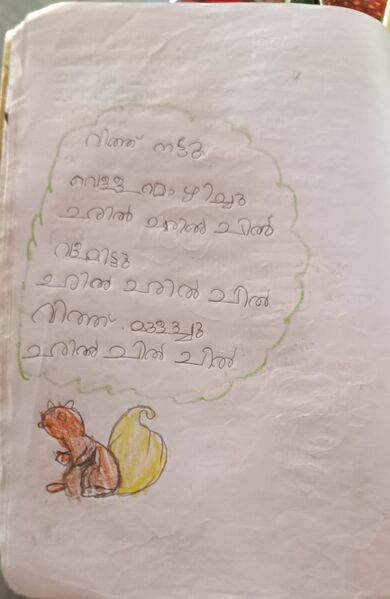 വിത്ത് നട്ടു
വെള്ള മൊഴിച്ചു
ചരിൽ ചരിൽ ചിൽ
വളമിട്ടു
ചരിൽ ചരിൽ ചിൽ
വിത്ത്. മുളച്ചു
ചരിൽ ചിൽ ചിൽ